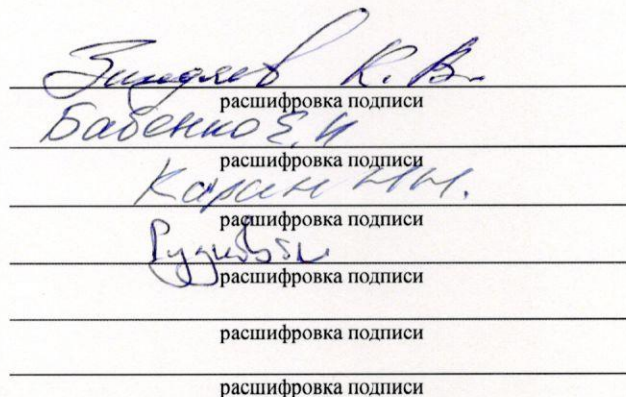 К. В.
расшифровка подписи
Бабенко Е. И
расшифровка подписи
Каран Н Н.
расшифровка подписи
расшифровка подписи
расшифровка подписи
расшифровка подписи